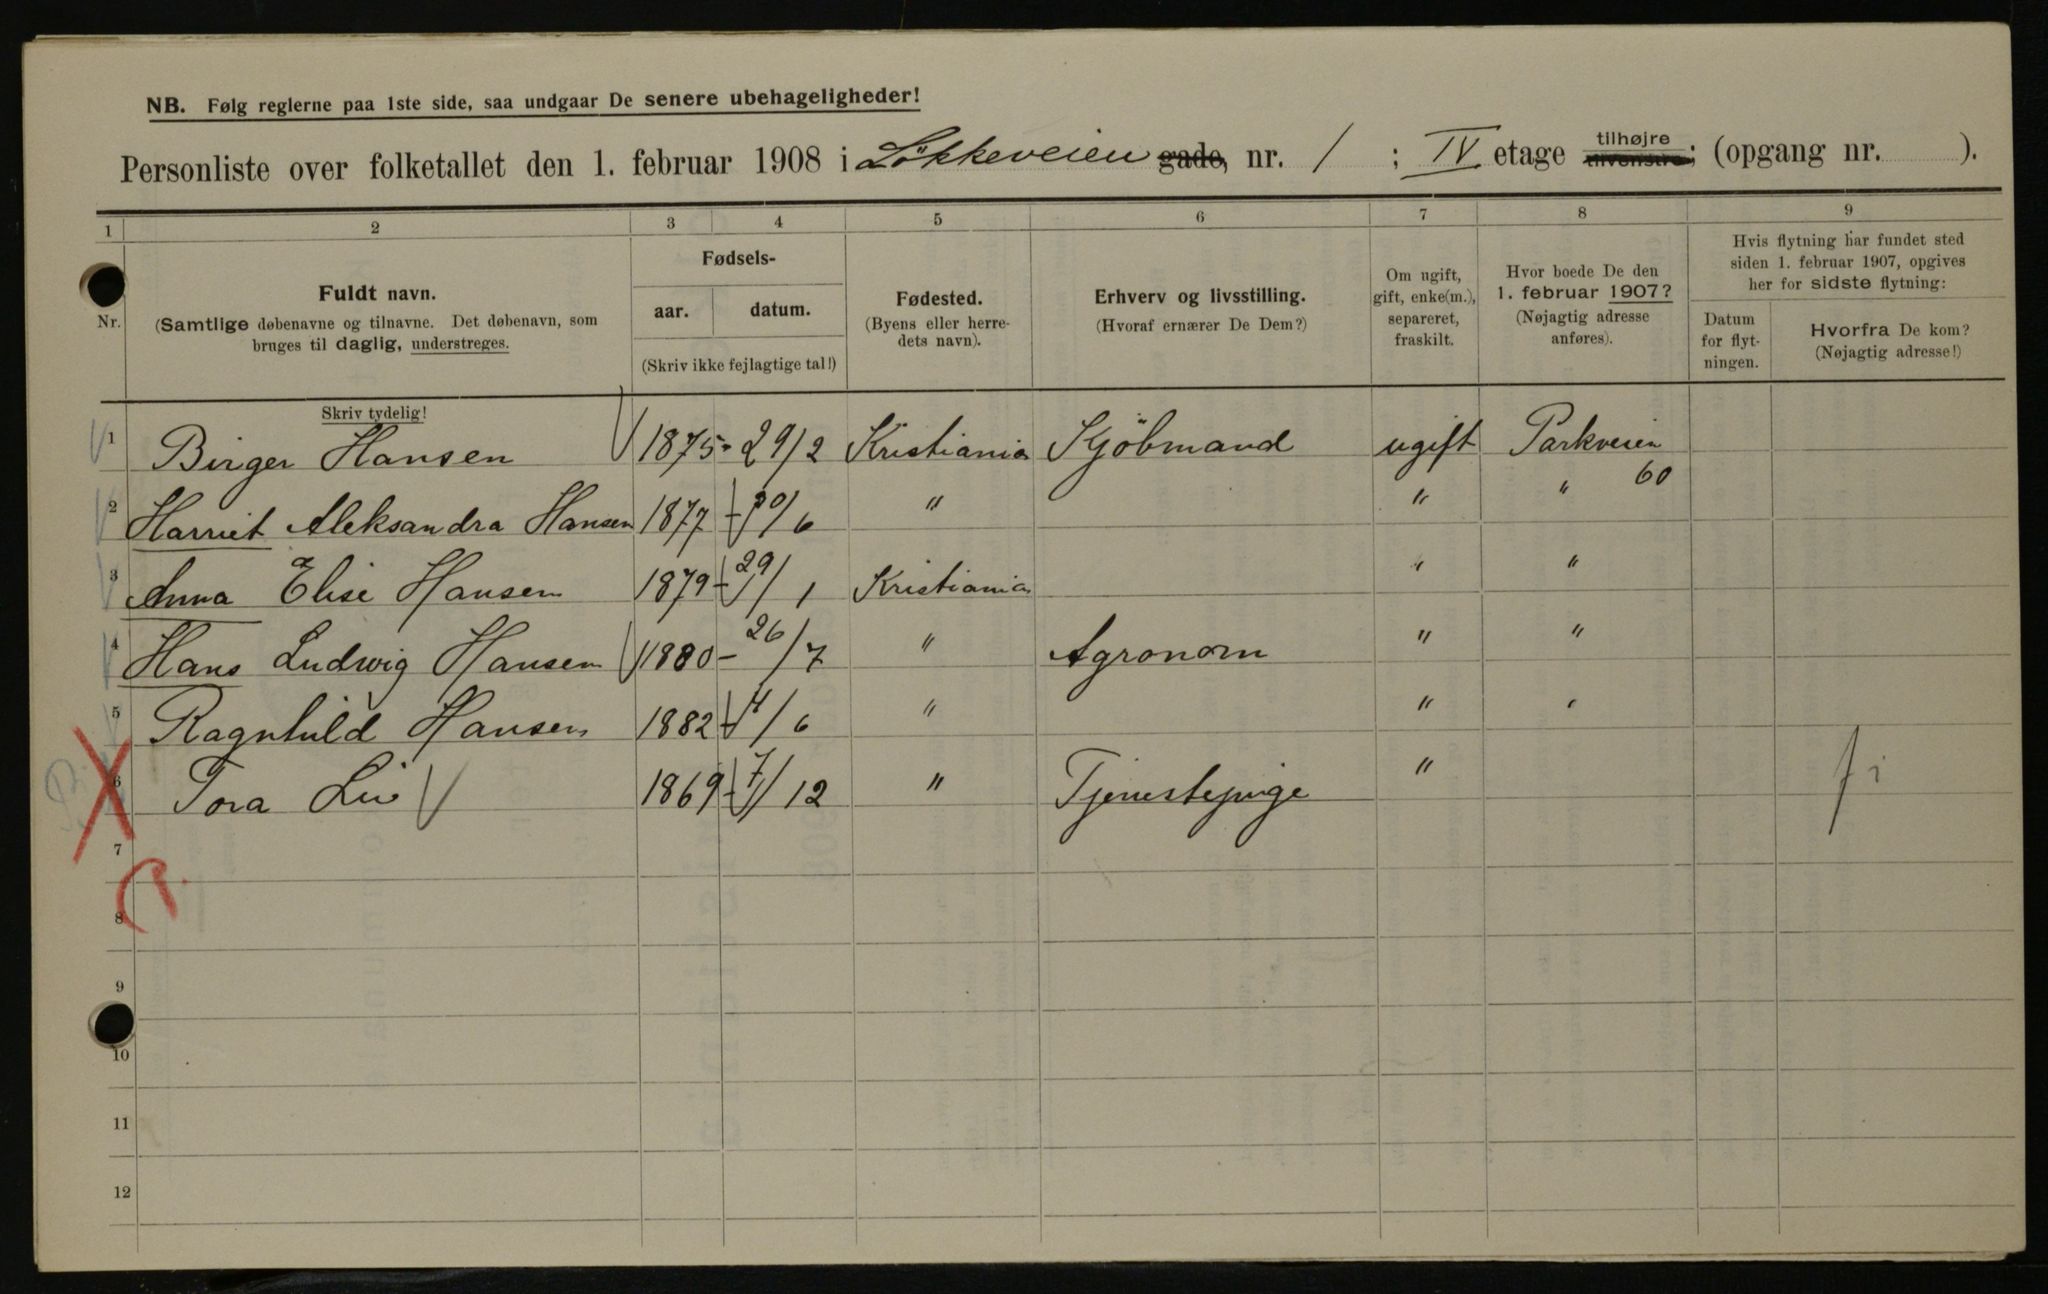 NB. Følg reglerne paa 1ste side, saa undgaar De senere ubehageligheder!
Personliste over folketallet den 1. februar 1908 i Løkkeveien gade, nr. 1 ; IV etage tilhøjre tilvenstre; (opgang nr. ).
1 2 3 4 5 6 7 8 9
Nr. Fuldt navn. (Samtlige døbenavne og tilnavne. Det døbenavn, som bruges til daglig, understreges.
Fødsels- aar. datum. (Skriv ikke fejlagtige tal!)
Fødested. (Byens eller herredets navn).
Erhverv og livsstilling. (Hvoraf ernærer De Dem?)
Om ugift, gift, enke(m.), separeret, fraskilt.
Hvor boede De den 1. februar 1907? (Nøjagtig adresse anføres).
Hvis flytning har fundet sted siden 1. februar 1907, opgives her for sidste flytning:
Datum for flytningen.
Hvorfra De kom? (Nøjagtig adresse!)
Skriv tydelig!
1 Birger Hansen 1875- 29/2 Kristiania Kjöbmand ugift Parkveien 60
2 Harriet Aleksandra Hansen 1877 - /6 " " "
3 Anna Elise Hansen 1879 - 29/1 Kristiania " "
4 Hans Ludwig Hansen 1880 - 26/7 " Agronom " "
5 Ragnhild Hansen 1882 - 4/6 " " "
6 Tora Lie 1869 - 7/12 " Tjenestepige "
7
8
9
10
11
12